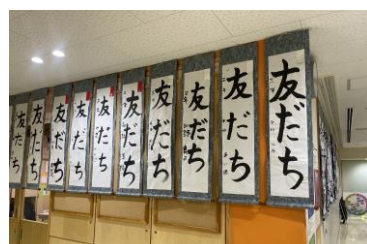 友だち
友だち
友だち
友だち
友だち
友だち
友だち
友だち
友だち
友だち